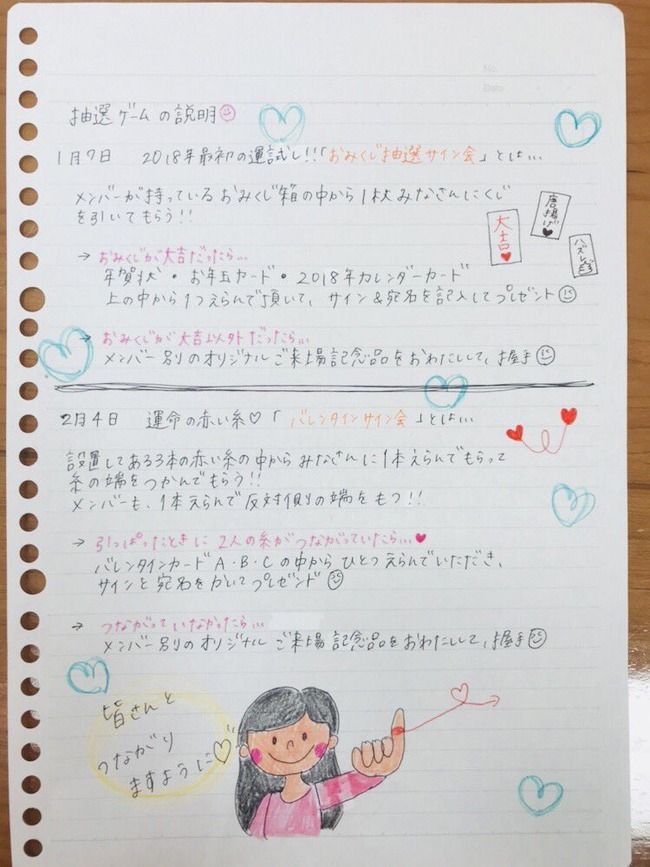 No.
Date
抽選ゲームの説明
1月7日 2018年最初の運試し!!「おみくじ抽選サイン会」とは...
メンバーが持っているおみくじ箱の中から1枚みなさんにくじ
を引いてもらう!!
大吉
唐揚げ
ハズレ
→ おみくじが大吉だったら...
年賀状・お年玉カード・2018年カレンダーカード
上の中から1つえらんで頂いて、サイン&宛名を記入してプレゼント
→ おみくじが大吉以外だったら...
メンバー別のオリジナルご来場記念品をおわたしして、握手
2月4日 運命の赤い糸♡「バレンタインサイン会」とは...
設置してある3本の赤い糸の中からみなさんに1本えらんでもらって
糸の端をつかんでもらう!!
メンバーも、1本えらんで反対側の端をもつ!!
→ 引っぱったときに2人の糸がつながっていたら...♥
バレンタインカードA・B・Cの中からひとつえらんでいただき、
サインと宛名をかいてプレゼント
→ つながっていなかったら...
メンバー別のオリジナルご来場記念品をおわたしして、握手
皆さんと
つながり
ますように♡